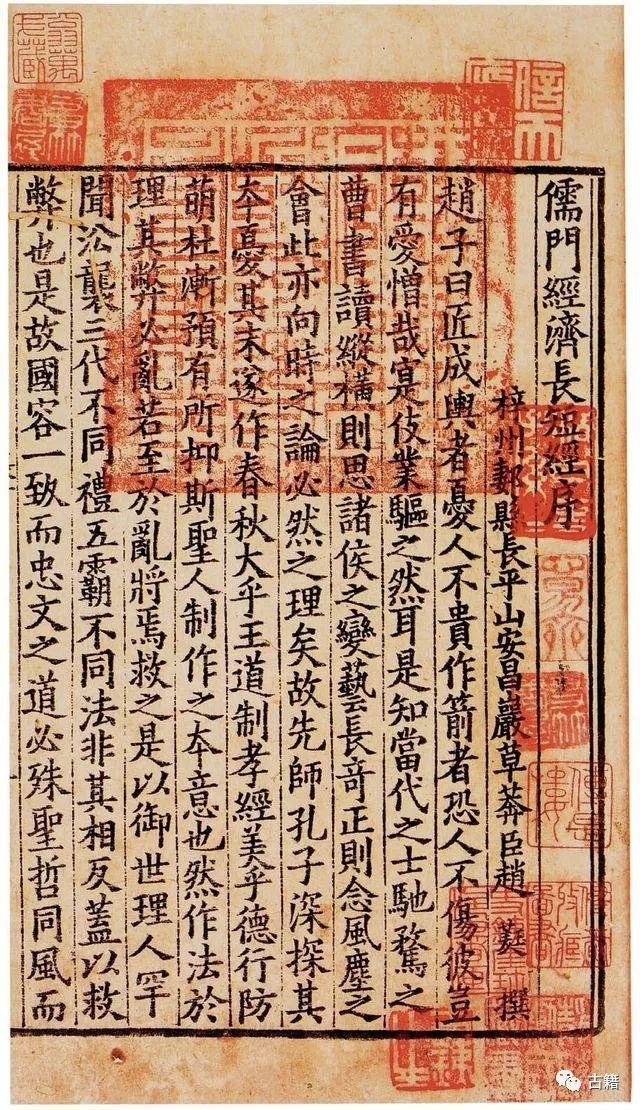 儒門經濟長短經序
梓州郪縣長平山安昌巖草莽臣趙 蕤 撰
趙子曰匠成輿者憂人不貴作箭者恐人不傷彼豈
有愛憎哉寔伎業驅之然耳是知當代之士馳騖之
曹書讀縱橫則思諸侯之變藝長竒正則念風塵之
會此亦向時之論必然之理矣故先師孔子深探其
夲憂其末遂作春秋大乎王道制孝經美乎德行防
萌杜漸預有所抑斯聖人制作之夲意也然作法於
理其弊必亂若至於亂將焉救之是以御世理人罕
聞沿襲三代不同禮五霸不同法非其相反蓋以救
弊也是故國容一致而忠文之道必殊聖哲同風而
古籍